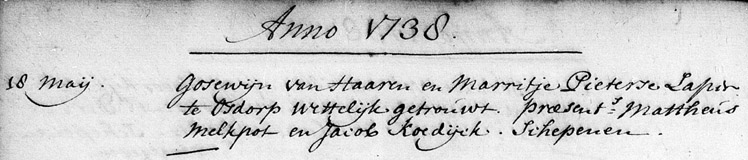 Anno 1738.
18 Maij. Gosewijn van Haaren en Marritje Pieterse
te Osdorp wettelijk getrouwt. præsent:s Mattheus
Melkpot en Jacob Koedijck. Schepenen.